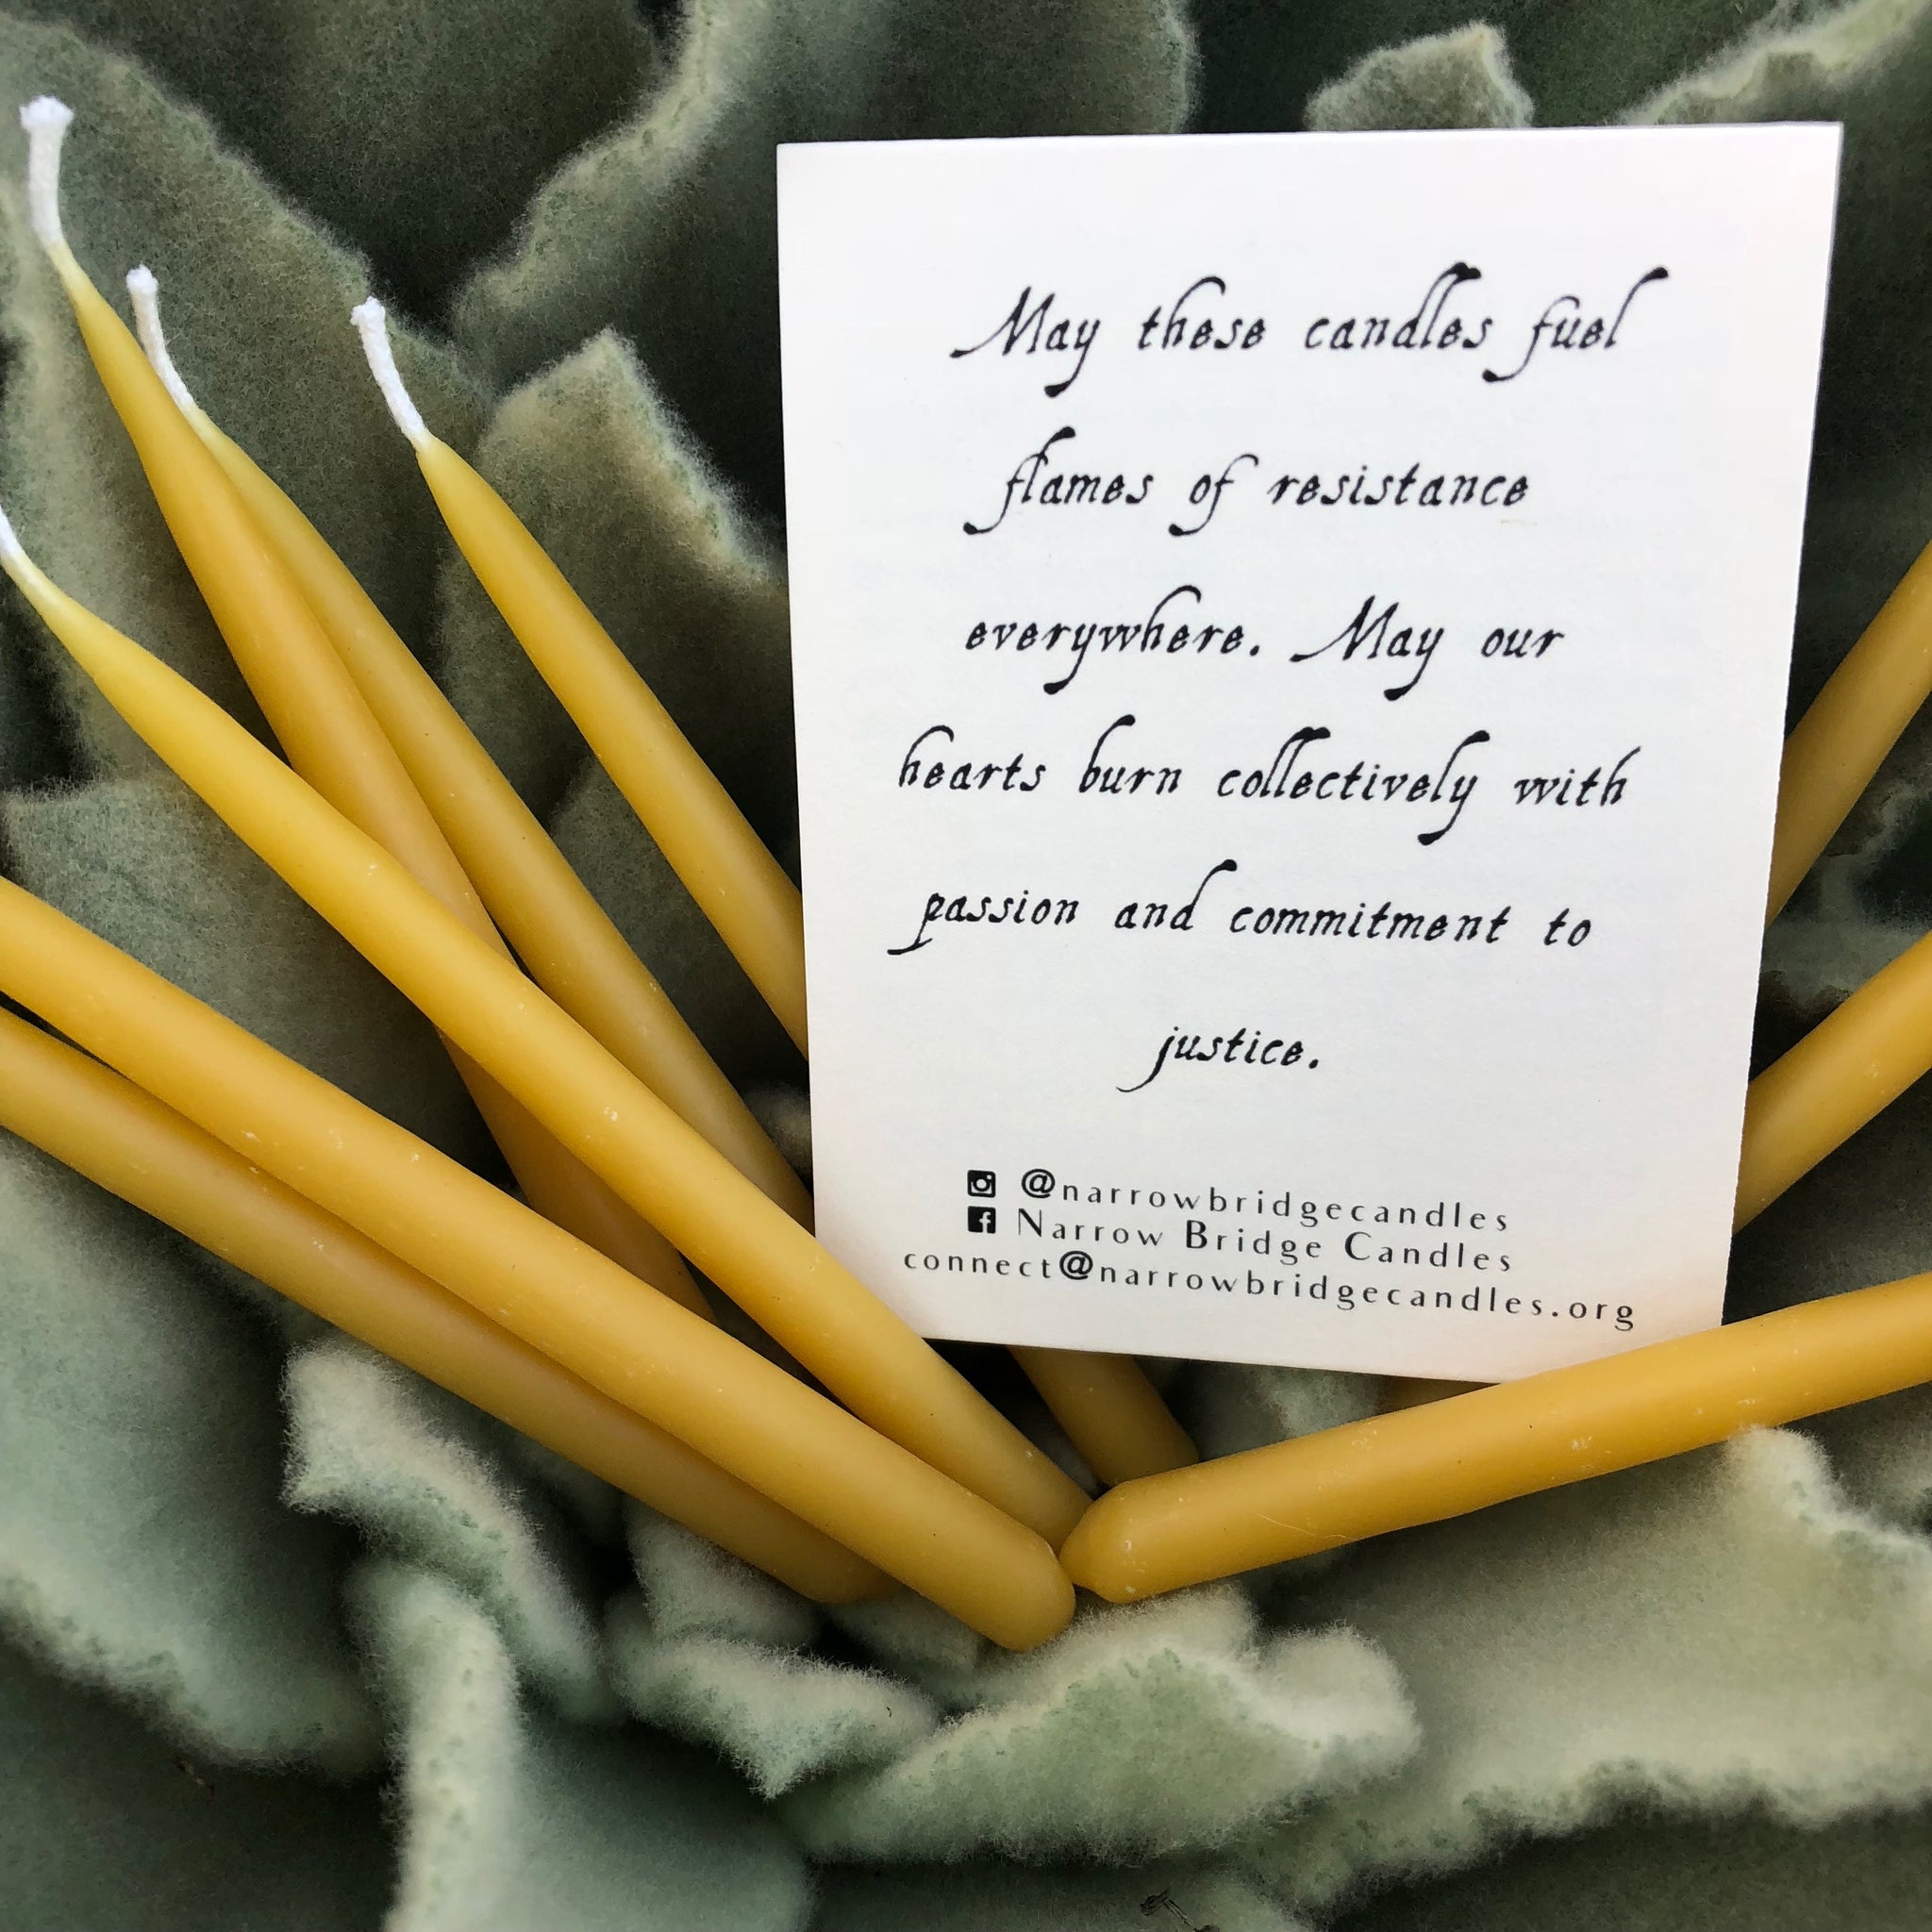 May these candles fuel
flames of resistance
everywhere. May our
hearts burn collectively with
passion and commitment to
justice.
@narrowbridgecandles
Narrow Bridge Candles
connect@narrowbridgecandles.org